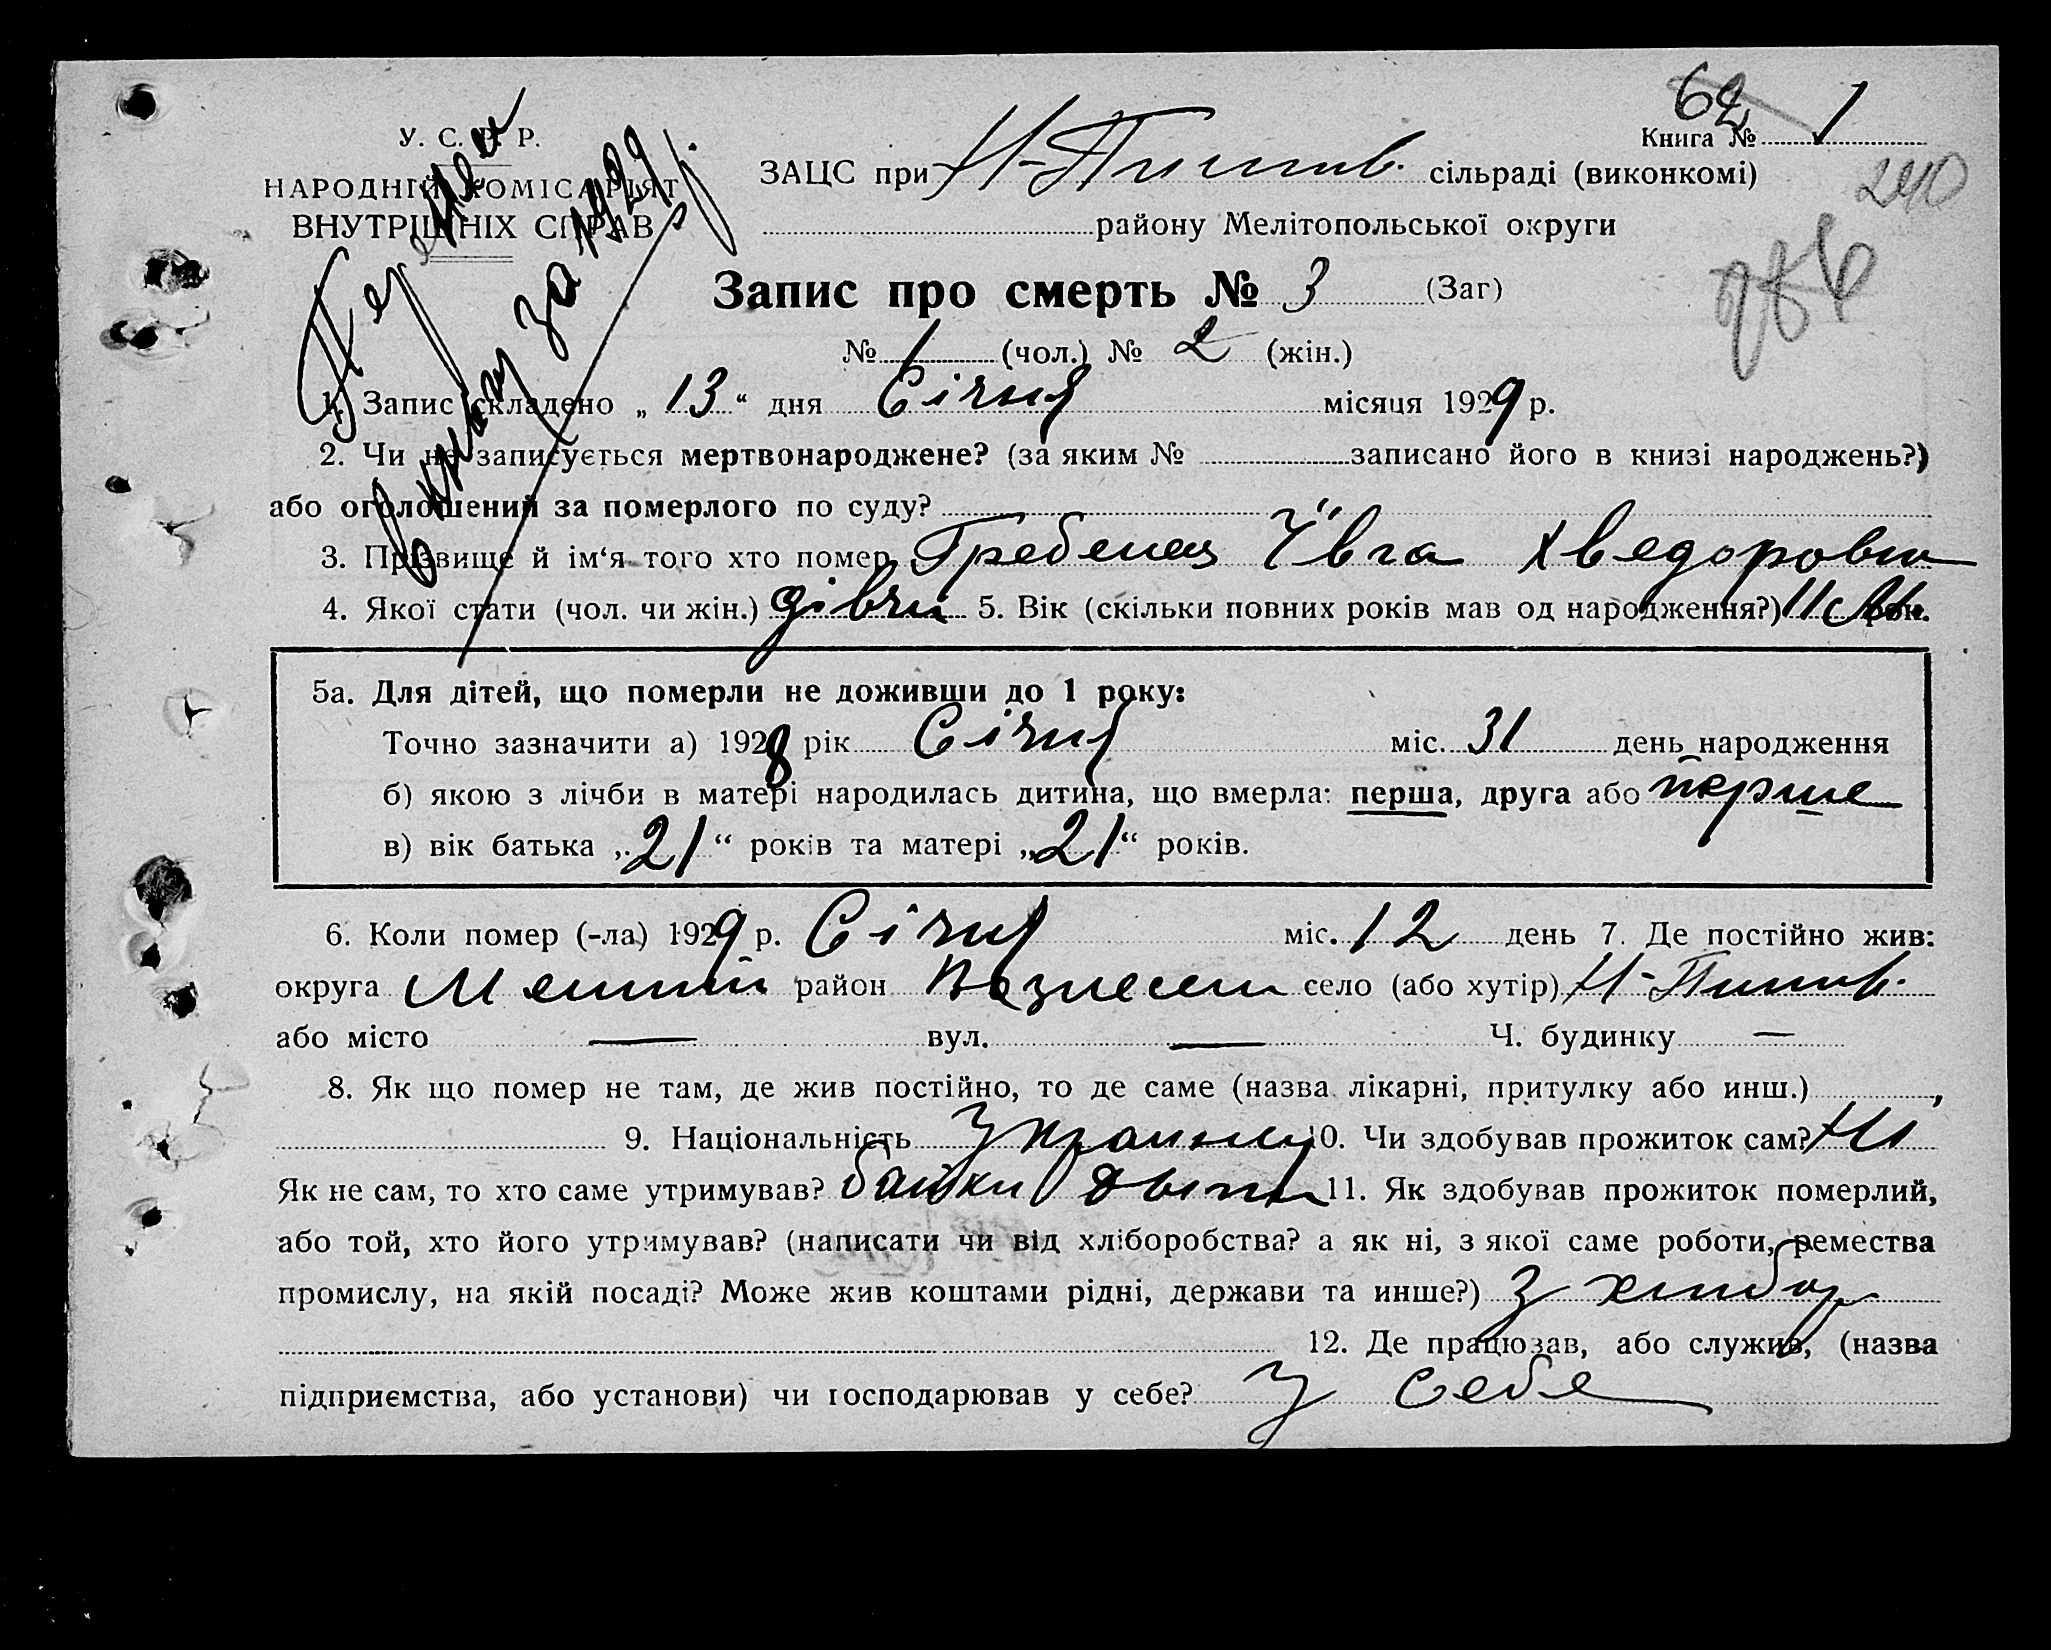 62 1
Книга №
У. С. Р. Р.
НАРОДНІЙ КОМІСАРІЯТ
ВНУТРІШНІХ СПРАВ
ЗАЦС при сільраді (виконкомі)
240
району Мелітопольської округи
за 1929 р.
Запис про смерть № 3 (Заг)
№ 1 (чол.) № 2 (жін.)
1. Запис складено „ 13 “ дня Січня місяця 1929 р.
2. Чи не записується мертвонароджене? (за яким № записано його в книзі народжень?)
або оголошений за померлого по суду?
3. Прізвище й ім‘я того хто помер Гребенец Ївга Хведоровна
4. Якої стати (чол. чи жін.) дівчи 5. Вік (скільки повних років мав од народження?) 11 рок.
5а. Для дітей, що померли не доживши до 1 року:
Точно зазначити а) 1928 рік Січня міс. 31 день народження
б) якою з лічби в матері народилась дитина, що вмерла: перша, друга або перше
в) вік батька „ 21 “ років та матері „ 21 “ років.
6. Коли помер (-ла) 1929 р. Січня міс. 12 день 7. Де постійно жив:
округа район Вознесен село (або хутір)
або місто — вул. — Ч. будинку —
8. Як що помер не там, де жив постійно, то де саме (назва лікарні, притулку або инш.) ,
9. Національність 10. Чи здобував прожиток сам? Ні
Як не сам, то хто саме утримував? батьки 11. Як здобував прожиток померлий,
або той, хто його утримував? (написати чи від хліборобства? а як ні, з якої саме роботи, ремества
промислу, на якій посаді? Може жив коштами рідні, держави та инше?) З хлібор
12. Де працював, або служив, (назва
підприємства, або установи) чи господарював у себе? У себе